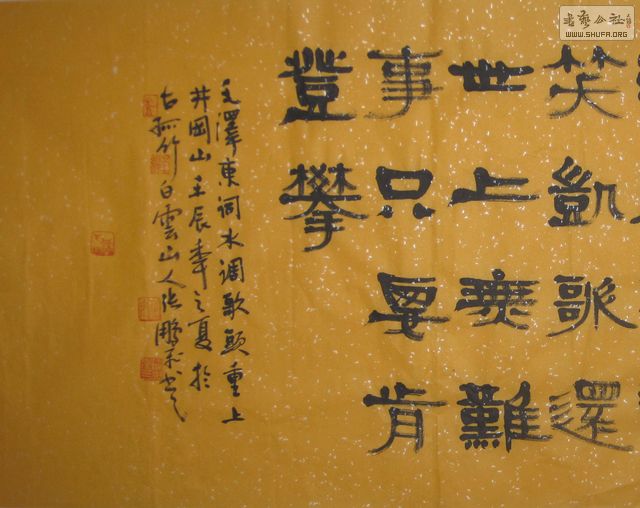 笑凱歌還
世上無難
事只要肯
登攀
毛澤東詞水调歌頭重上
井岡山壬辰年之夏於
古孤竹白雲山人张鵬
書藝公社
WWW.SHUFA.ORG